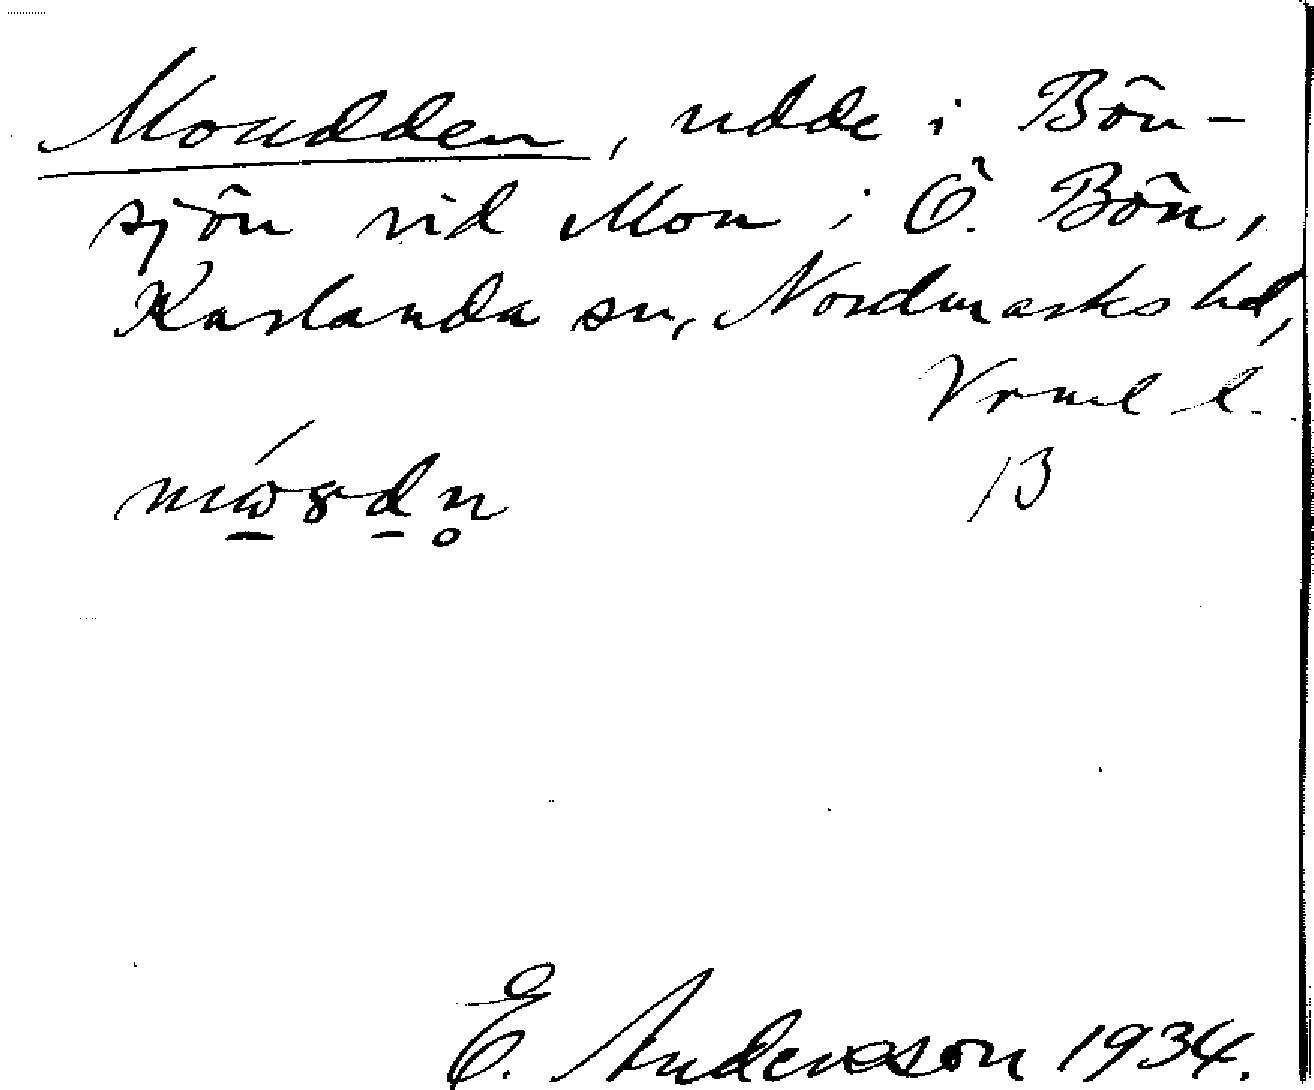 Moudden, udde i Bön-
sjön vid Mon i Ö. Bön,
Karlanda sn, Nordmarks hd,
Vrml l.
13
E. Andersson 1934.